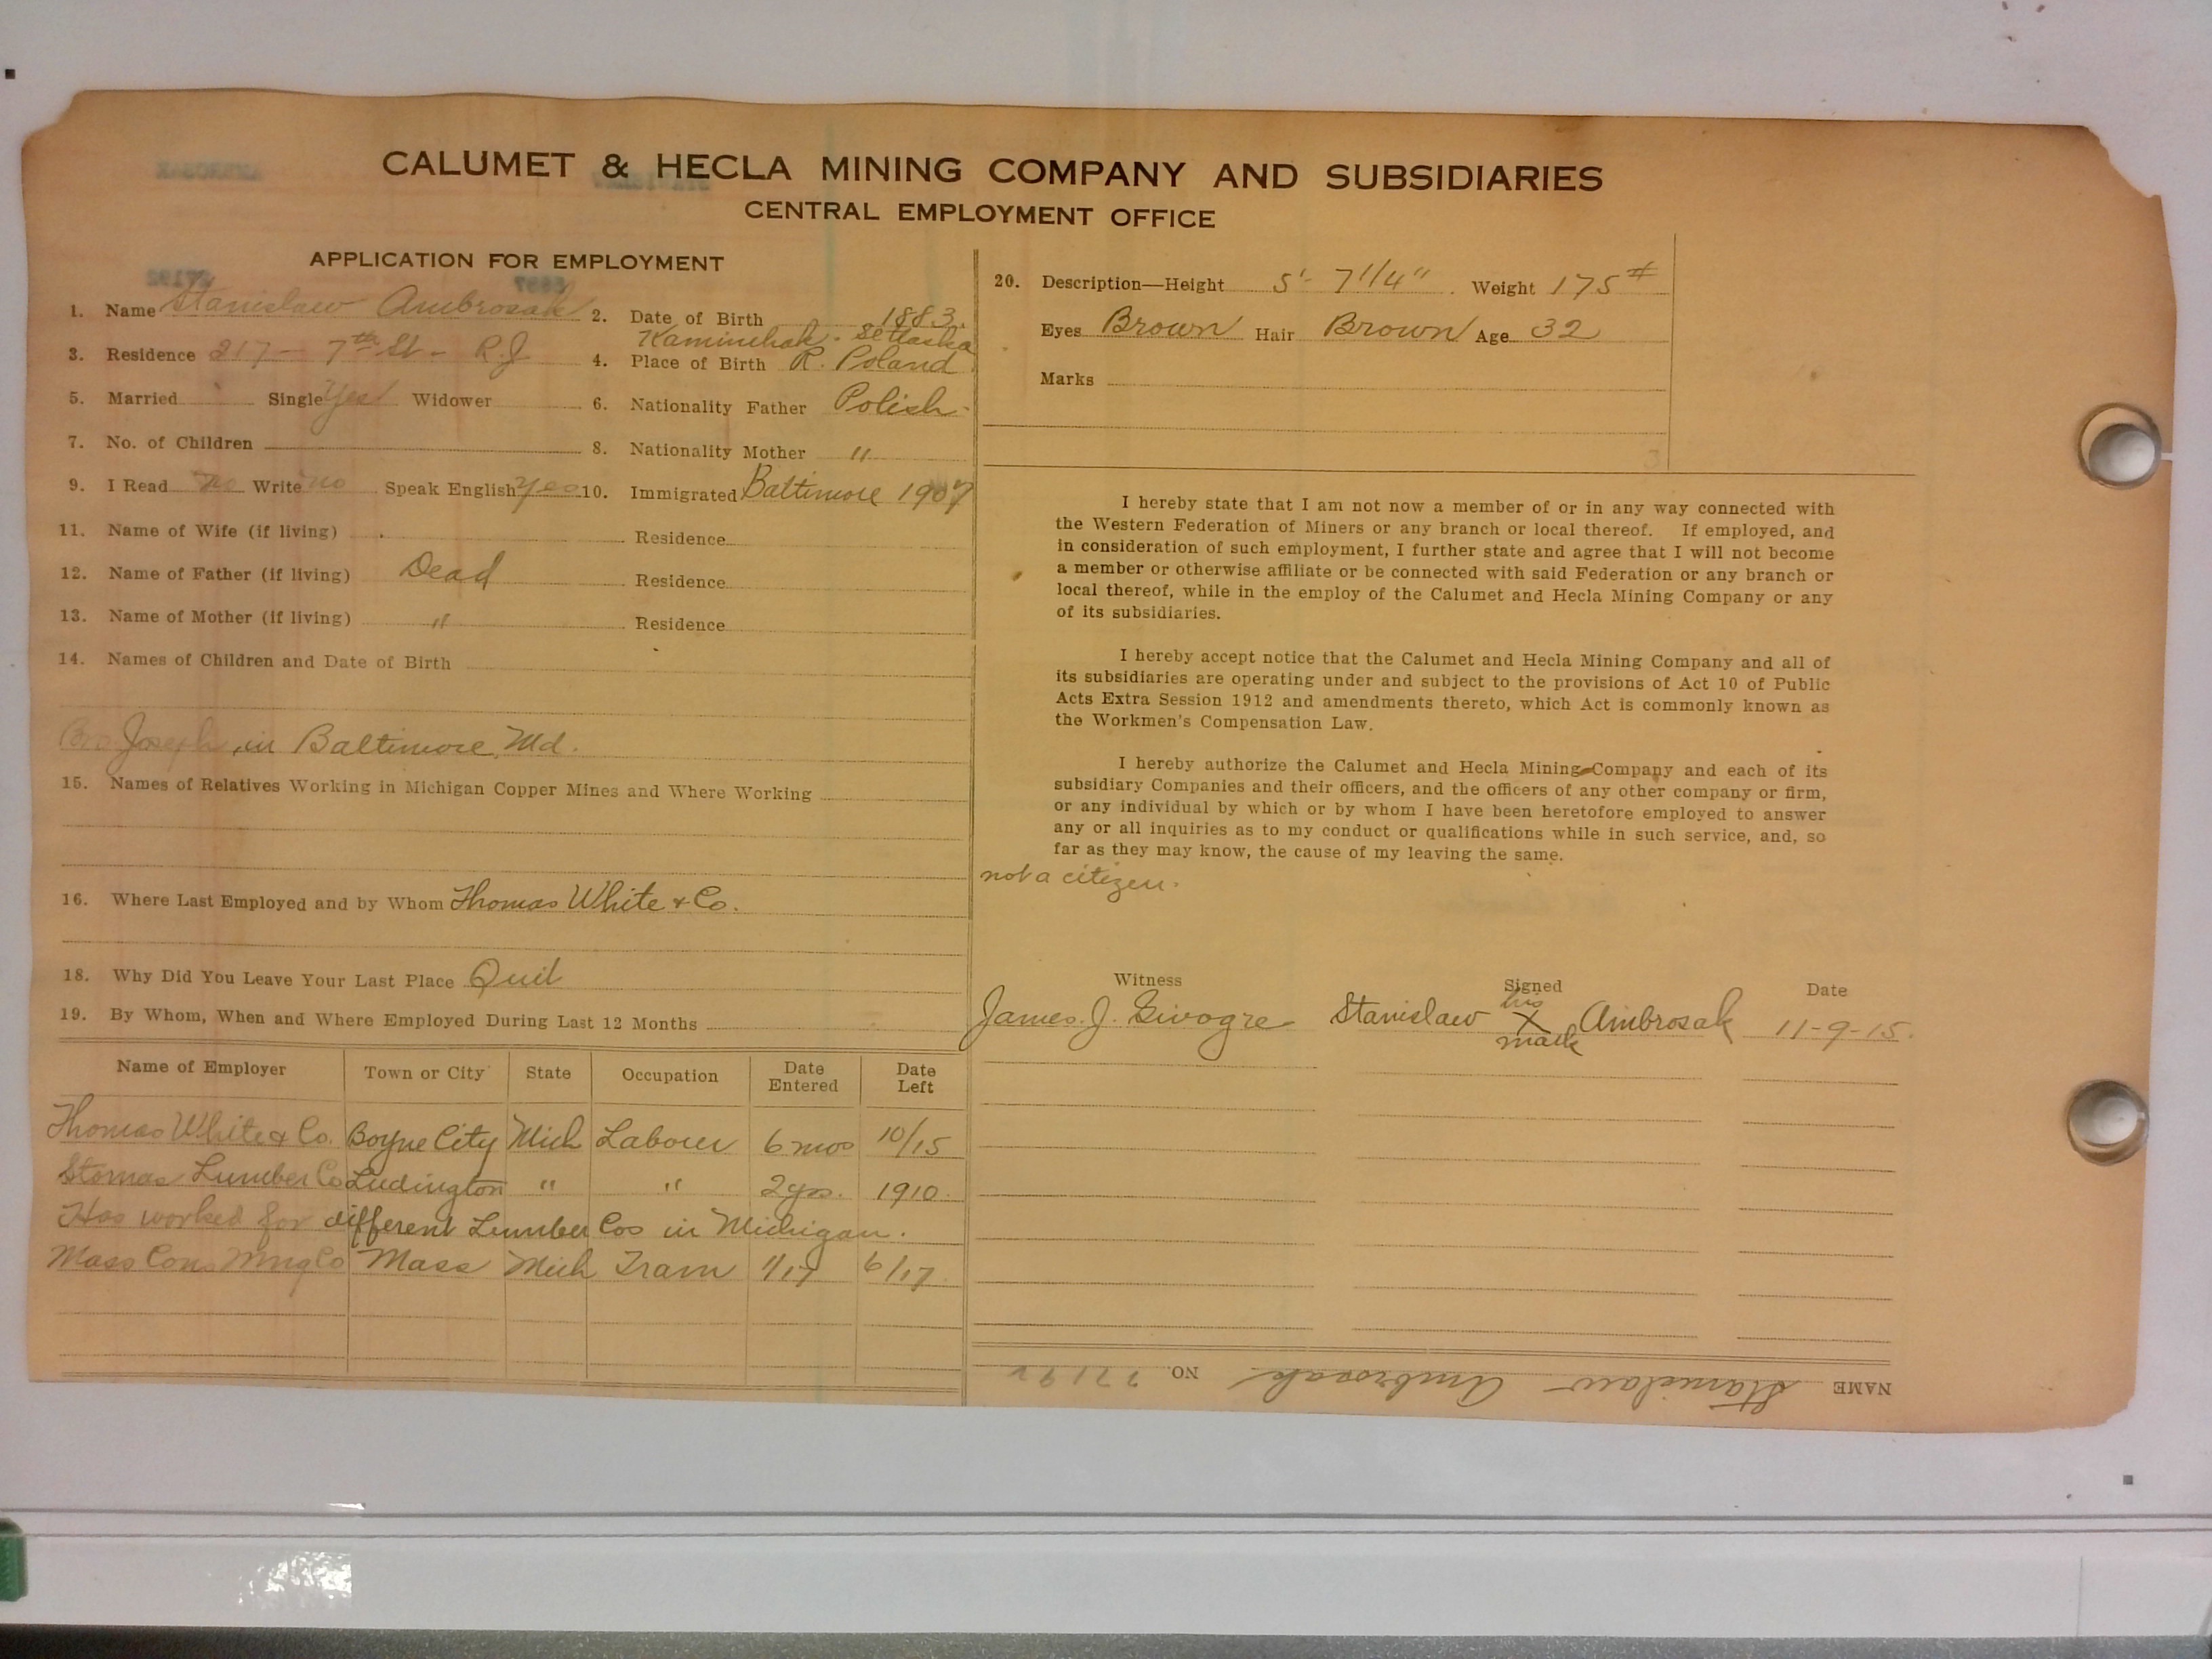 CALUMET & HECLA MINING COMPANY AND SUBSIDIARIES
CENTRAL EMPLOYMENT OFFICE
APPLICATION FOR EMPLOYMENT
1. Name Stanislaw Ambrosak 2. Date of Birth 1883.
3. Residence 217 - 7th St - R.J. 4. Place of Birth R. Poland
5. Married Single Yes Widower 6. Nationality Father Polish.
7. No. of Children 8. Nationality Mother "
9. I Read no Write no Speak English Yes 10. Immigrated Baltimore 1907
11. Name of Wife (if living) Residence
12. Name of Father (if living) Dead Residence
13. Name of Mother (if living) " Residence
14. Names of Children and Date of Birth
Bro Joseph, in Baltimore, Md.
15. Names of Relatives Working in Michigan Copper Mines and Where Working
16. Where Last Employed and by Whom Thomas White & Co.
18. Why Did You Leave Your Last Place Quit
19. By Whom, When and Where Employed During Last 12 Months
Name of Employer Town or City State Occupation Date Entered Date Left
Thomas White & Co. Boyne City Mich Laborer 6 mos 10/15
Lumber Co Ludington " " 2 yrs. 1910.
Has worked for different Lumber Cos in Michigan.
Mass Cons Mng Co Mass Mich Tram 1/17 6/17
20. Description—Height 5'- 7 1/4" Weight 175#
Eyes Brown Hair Brown Age 32
Marks
I hereby state that I am not now a member of or in any way connected with
the Western Federation of Miners or any branch or local thereof. If employed, and
in consideration of such employment, I further state and agree that I will not become
a member or otherwise affiliate or be connected with said Federation or any branch or
local thereof, while in the employ of the Calumet and Hecla Mining Company or any
of its subsidiaries.
I hereby accept notice that the Calumet and Hecla Mining Company and all of
its subsidiaries are operating under and subject to the provisions of Act 10 of Public
Acts Extra Session 1912 and amendments thereto, which Act is commonly known as
the Workmen's Compensation Law.
I hereby authorize the Calumet and Hecla Mining Company and each of its
subsidiary Companies and their officers, and the officers of any other company or firm,
or any individual by which or by whom I have been heretofore employed to answer
any or all inquiries as to my conduct or qualifications while in such service, and, so
far as they may know, the cause of my leaving the same.
not a citizen.
Witness Signed Date
James. J. Givogre Stanislaw his X mark Ambrosak 11-9-15.
NAME Stanislaw Ambrosak NO. 27192